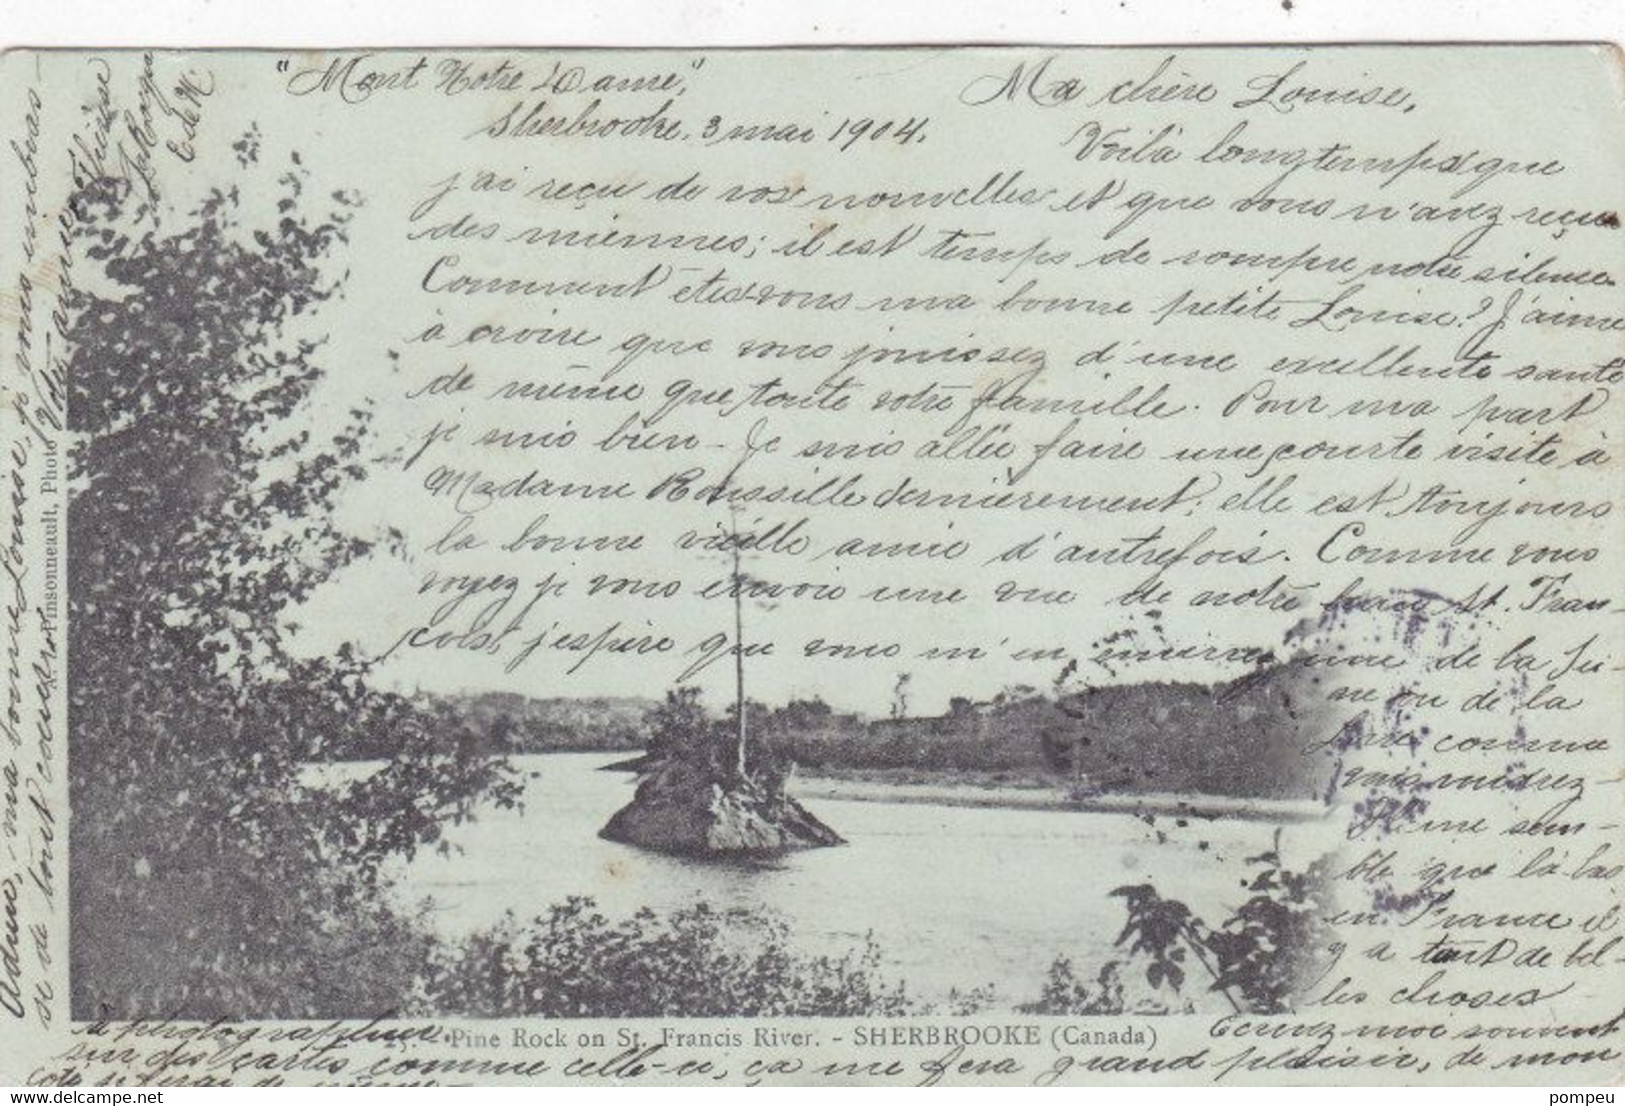 "Mont Notre Dame,"
Sherbrooke, 3 mai 1904.
Ma chère Louise,
Voilà longtemps que
j'ai reçu de vos nouvelles et que vous n'avez reçu
des miennes; il est temps de rompre notre silence.
Comment êtes-vous ma bonne petite Louise? J'aime
à croire que vous jouissez d'une excellente santé
de même que toute votre famille. Pour ma part
je suis bien - Je suis allée faire une courte visite à
Madame Roussille dernièrement; elle est toujours
la bonne vieille amie d'autrefois. Comme vous
voyez je vous envoie une vue de notre beau St. Fran-
çois, j'espère que vous m'en enverrez une de la Sei-
ne ou de la
comme
vous voudrez-
Il me sem-
ble que là-bas
en France il
y a tant de bel-
les choses
à photographier.
Ecrivez-moi souvent
sur des cartes comme celle-ci, ça me fera grand plaisir, de mon
côté je ferai de même -
Adieu, ma bonne Louise, je vous embrasse
de tout cœur
Votre amie
Thérèse
E. de M.
Pinsonneault, Photo
Pine Rock on St. Francis River. - SHERBROOKE (Canada)
pompeu